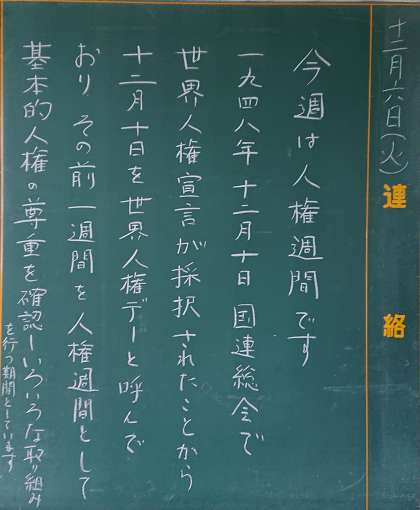 十二月六日(火)
連絡
今週は人権週間です
一九四八年十二月十日国連総会で
世界人権宣言が採択されたことから
十二月十日を世界人権デーと呼んで
おり その前一週間を人権週間として
基本的人権の尊重を確認しいろいろな取り組み
を行う期間としています